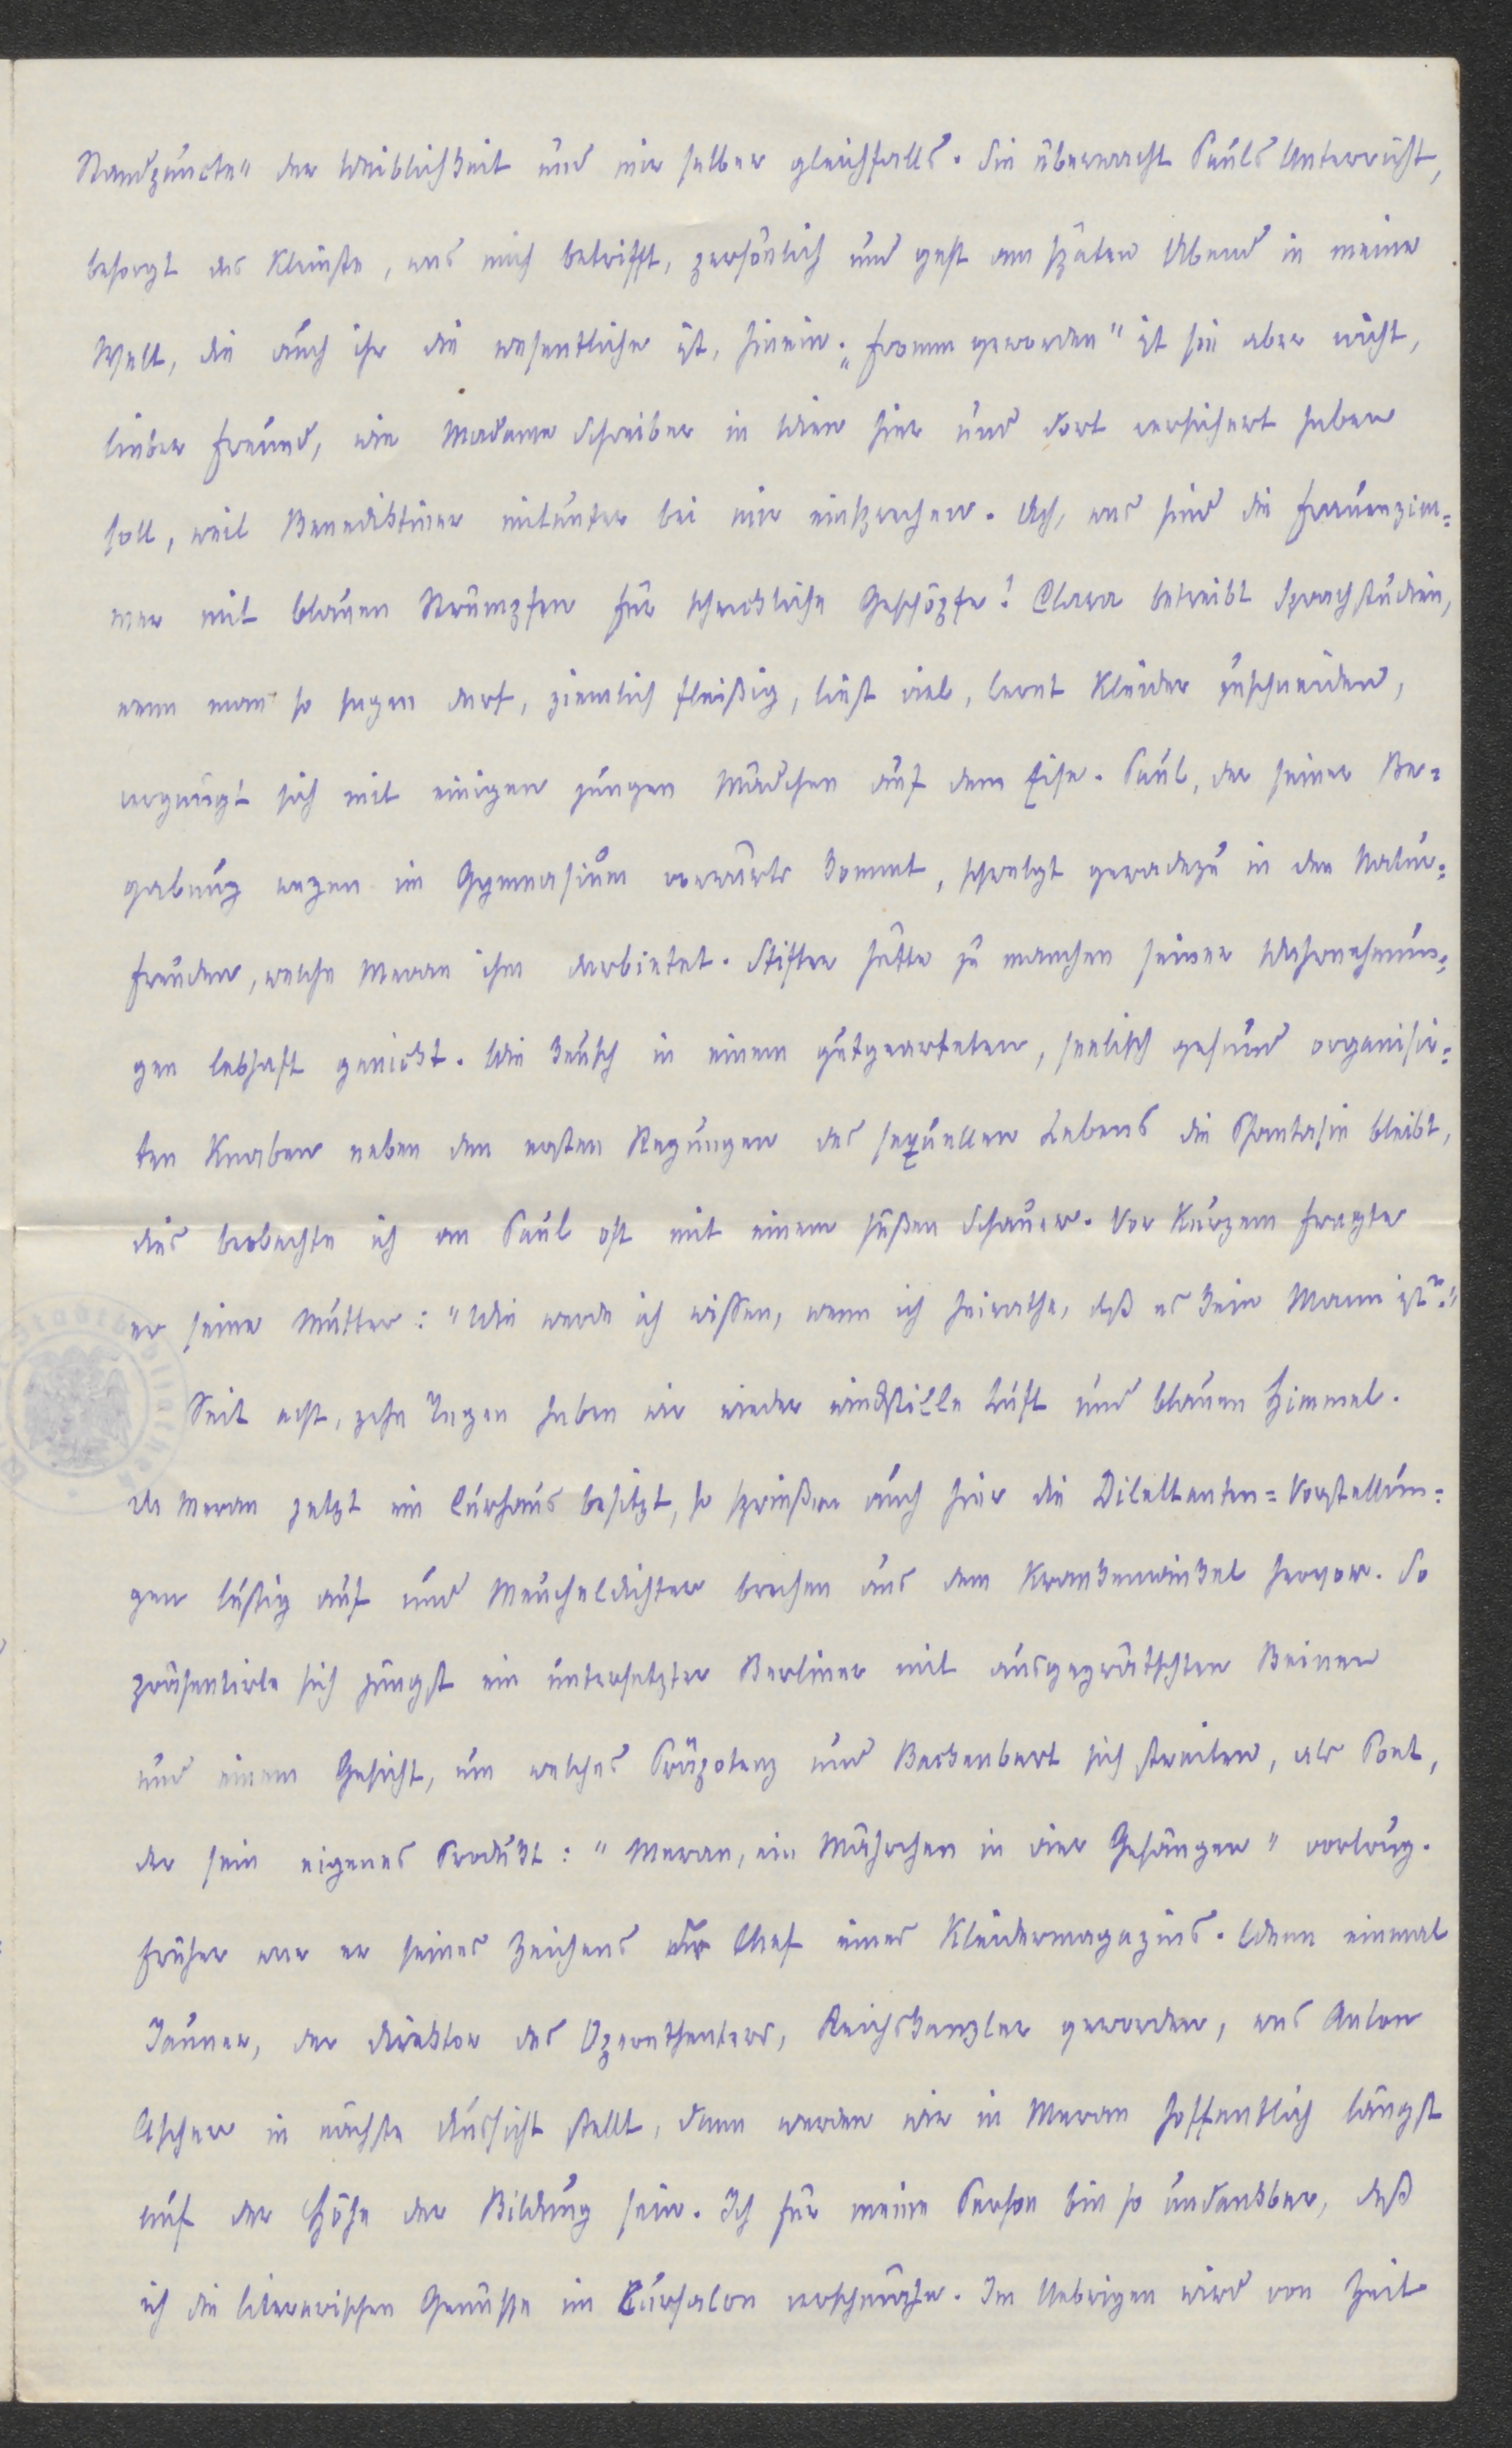 Standpuncte" der Weiblichkeit und mir selber gleichfalls. Sie überwacht Pauls Unterricht,
besorgt das Kleinste, was mich betrifft, persönlich und geht am späten Abend in meine
Welt, die auch ihr die wesentliche ist, hinein. „Fromm geworden" ist sie aber nicht,
lieber Freund, wie Madame Schreiber in Wien hier und dort versichert haben
soll, weil Benediktiner mitunter bei mir einsprechen. Ach, was sind die Frauenzim=
mer mit blauen Strümpfen für schreckliche Geschöpfe! Clara betreibt Sprachstudien,
wenn man so sagen darf, ziemlich fleißig, liest viel, lernt Kleider zuschneiden,
vergnügt sich mit einigen jungen Mädchen auf dem Eise. Paul, der seiner Be=
gabung wegen im Gymnasium vorwärts kommt, schwelgt geradezu in den Natur=
freuden, welche Meran ihm darbietet. Stifter hätte zu manchen seiner Wahrnehmun=
gen lebhaft genickt. Wie keusch in einem gutgearteten, seelisch gesund organisir=
ten Knaben neben den ersten Regungen des sexuellen Lebens die Phantasie bleibt,
dies beobachte ich an Paul oft mit einem süßen Schauer. Vor Kurzem fragte
er seine Mutter: "Wie werde ich wissen, wenn ich heirathe, daß es kein Mann ist?"
Seit acht, zehn Tagen haben wir wieder windstille Luft und blauen Himmel.
Da Meran jetzt ein Curhaus besitzt, so sprießen auch hier die Dilettanten=Vorstellun=
gen lustig auf und Meucheldichter brechen aus dem Krankenwinkel hervor. So
präsentirte sich jüngst ein untersetzter Berliner mit ausgegrätschten Beinen
und einem Gesicht, um welches Präpotenz und Backenbart sich streiten, als Poet,
der sein eigenes Produkt: "Meran, ein Mährchen in vier Gesängen" vortrug.
Früher war er seines Zeichens Chef eines Kleidermagazins. Wenn einmal
Jauner, der Direktor des Operntheaters, Reichskanzler geworden, was Anton
Ascher in nächste Aussicht stellt, dann werden wir in Meran hoffentlich längst
auf der Höhe der Bildung sein. Ich für meine Person bin so undankbar, daß
ich die literarischen Genüsse im Cursalon verschmähe. Im Uebrigen wird von Zeit